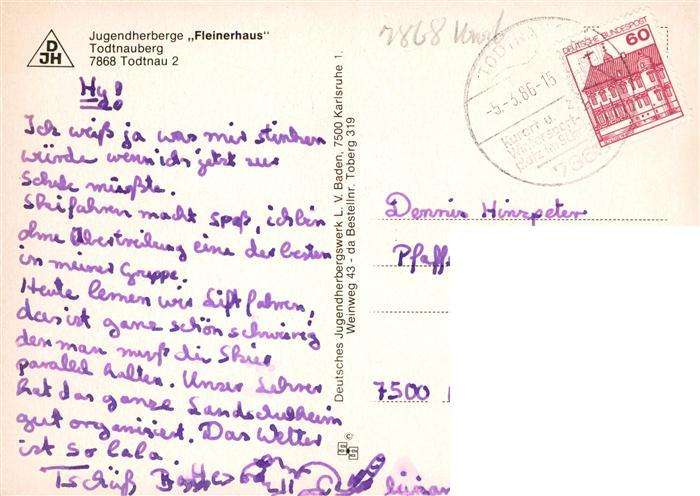 DJH
Jugendherberge „Fleinerhaus"
Todtnauberg
7868 Todtnau 2
Hy!
Ich weiß ja was mir stinken
würde wenn ich jetzt zur
Schule müßte.
Skifahren macht spaß, ich bin
ohne Übertreibung eine der besten
in meiner Gruppe.
Heute lernen wir Lift fahren,
das ist ganz schön schwierig
den man muß die Skier
parallel halten. Unser Lehrer
hat das ganze Landschulheim
gut organisiert. Das Wetter
ist so lala.
Tschüß
Deutsches Jugendherbergswerk L. V. Baden, 7500 Karlsruhe 1.
Weinweg 43 - da Bestellnr. Toberg 319
©
7868
TODTNA
-5.-3.86-15
DEUTSCHE BUNDESPOST
60
Dennis Hinzpeter
Pfaff
7500